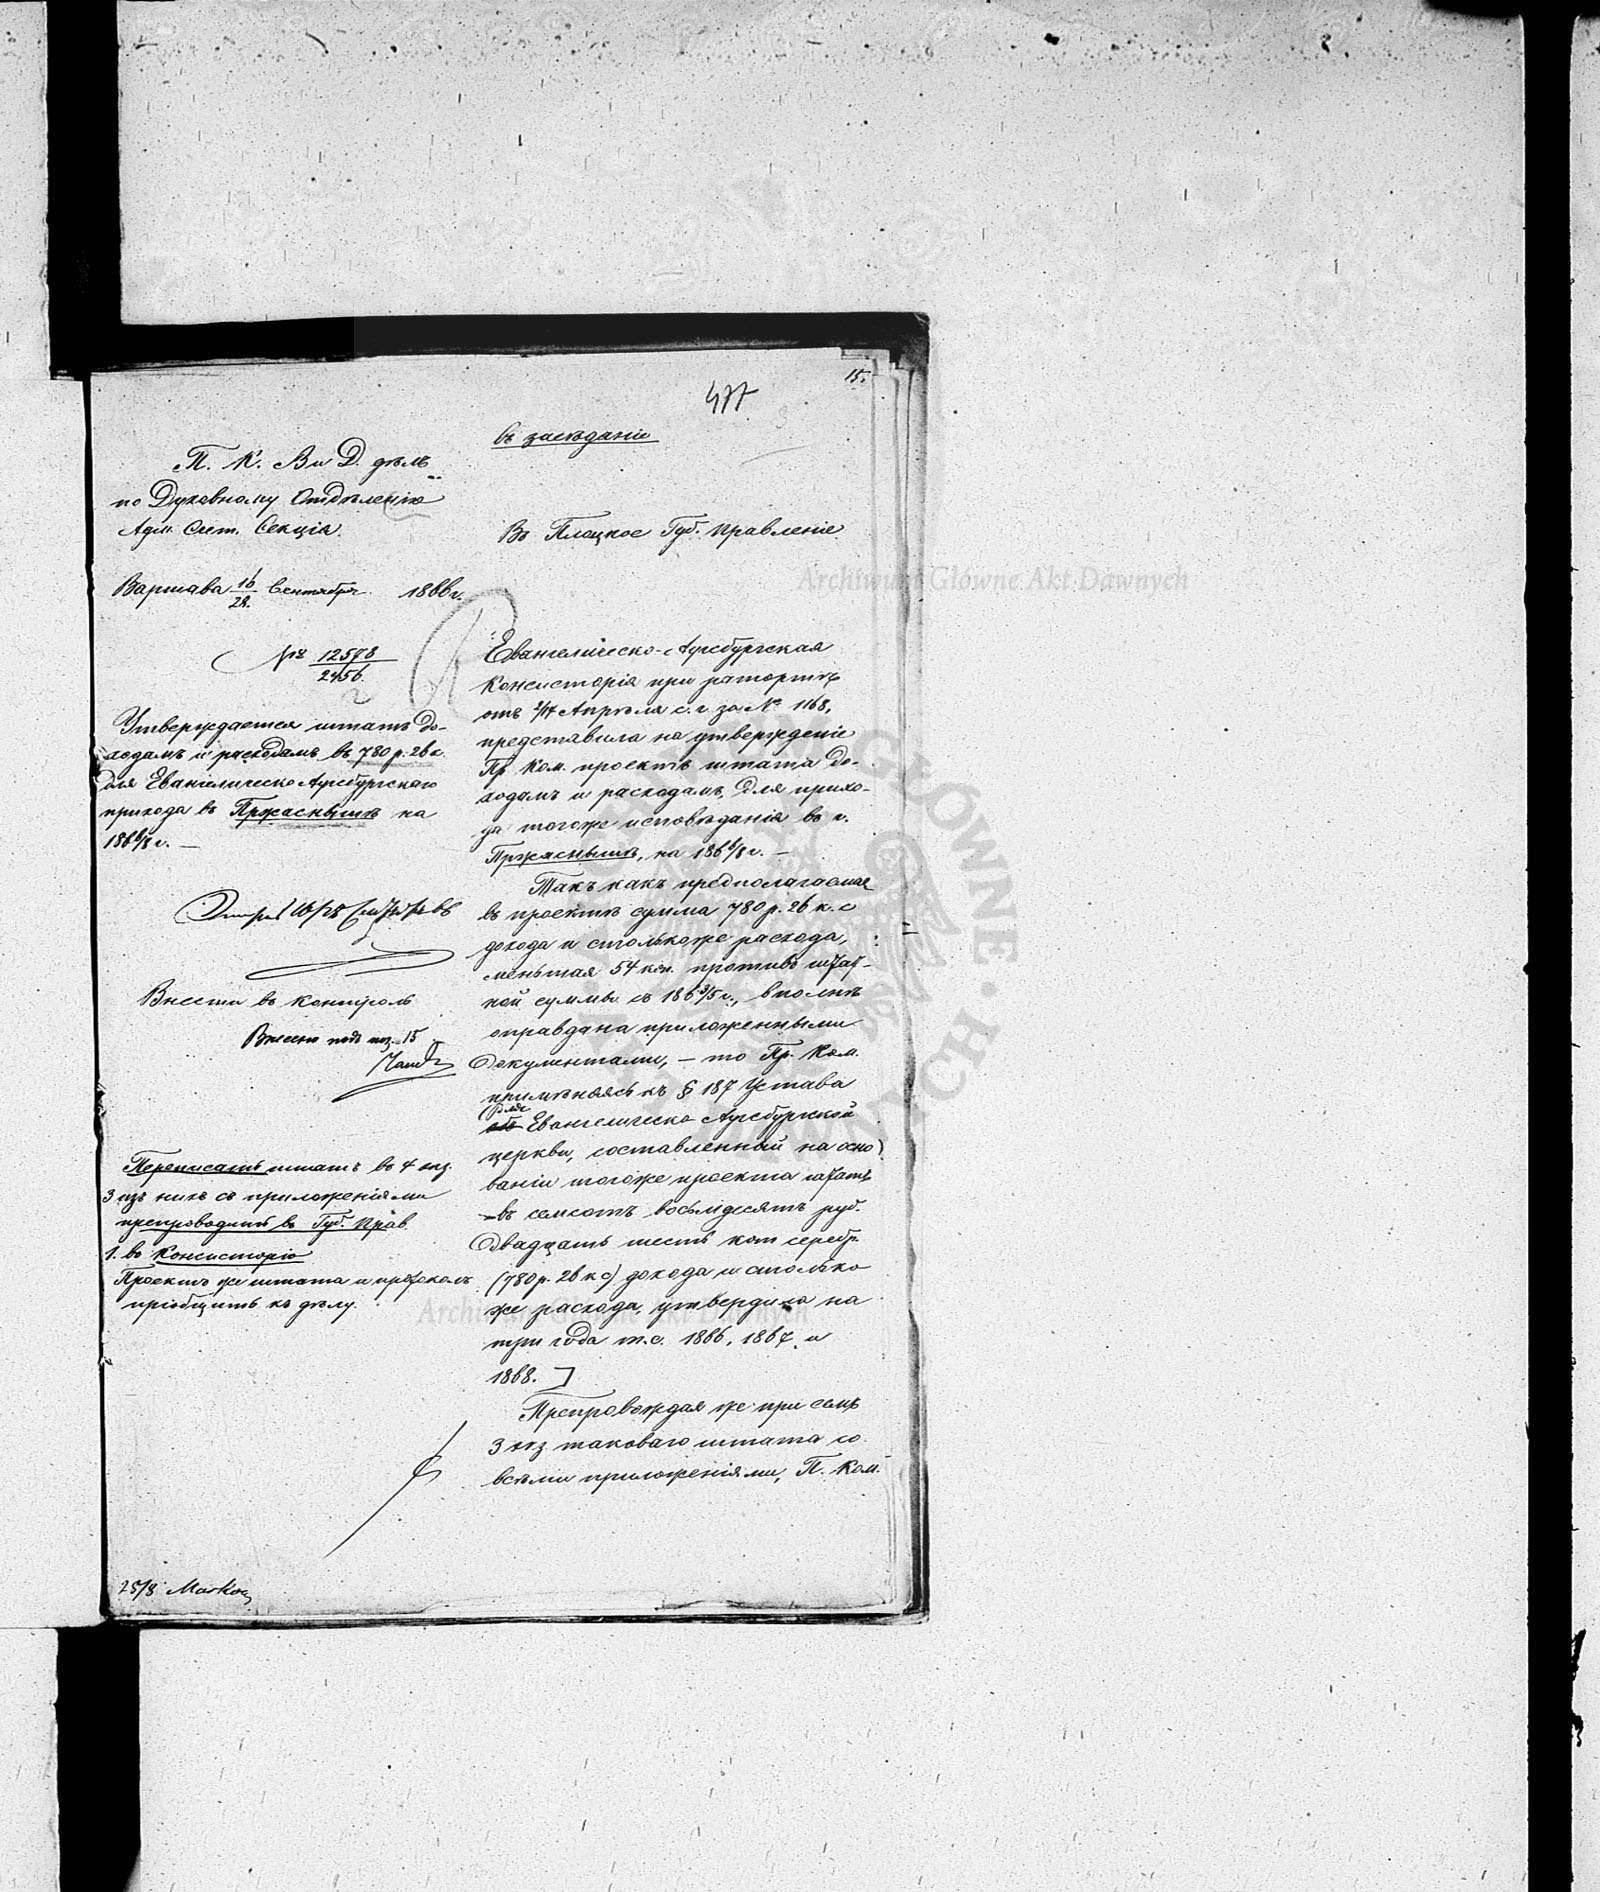 15.
477
въ засѣданіе
П. К. Вн Д. дѣлъ
по Духовному Отдѣленію
Адм. Счет. Секція.
Варшава 16/28. Сентября 1866 г.
№ 12578/2456.
Утверждается штатъ до-
ходамъ и расходамъ въ 780 р. 26 к
для Евангелическо Аугсбургскаго
прихода въ Пржаснышѣ на
1866/8 г. —
16/28
Внести въ контроль
Внесено подъ поз. 15
Переписать штатъ въ 4 экз.
3 изъ нихъ съ приложеніями
препроводить въ Губ. Прав.
1. въ Консисторію
Проектъ же штата и протоколъ
пріобщить къ дѣлу.
25/8
Въ Плоцкое Губ. Правленіе
Евангелическо-Аугсбургская
Консисторія при рапортѣ
отъ 2/14 Апрѣля с. г. за № 1168,
представила на утвержденіе
Пр. Ком. проектъ штата до-
ходамъ и расходамъ, для прихо-
да тогоже исповѣданія въ г.
Пржаснышѣ, на 1866/8 г. —
Такъ какъ предполагаемая
въ проектѣ сумма 780 р. 26 к. с
дохода и столькоже расхода,
меньшая 54 коп. противъ штат-
ной суммы съ 1863/5 г., вполнѣ
оправдана приложенными
документами, — то Пр. Ком.
примѣняясь къ § 187 Устава
для
Евангелическо Аугсбургской
церкви, составленный на осно
ваніи тогоже проекта штатъ
въ семсотъ восьмдесятъ руб.
двадцать шесть коп серебр.
(780 р. 26 к с) дохода и столько
же расхода, утвердила на
три года т. е. 1866, 1867 и
1868. ]
Препровождая же при семъ
3 экз таковаго штата со
всѣми приложеніями, П. Ком.
Archiwum Główne Akt Dawnych
Archiwum Główne Akt Dawnych